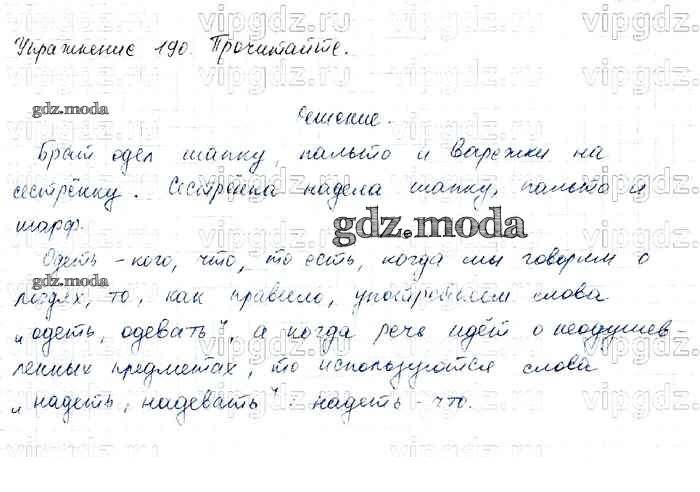 Упражнение 190. Прочитайте.
gdz.moda
Решение.
Брат одел шапку, пальто и варежки на
сестрёнку. Сестрёнка надела шапку, пальто и
шарф.
gdz.moda
Одеть - кого, что, то есть, когда мы говорим о
gdz.moda
людях, то, как правило, употребляем слова
„одеть, одевать", а когда речь идёт о неодушев-
ленных предметах, то используются слова
„надеть, надевать". надеть - что.